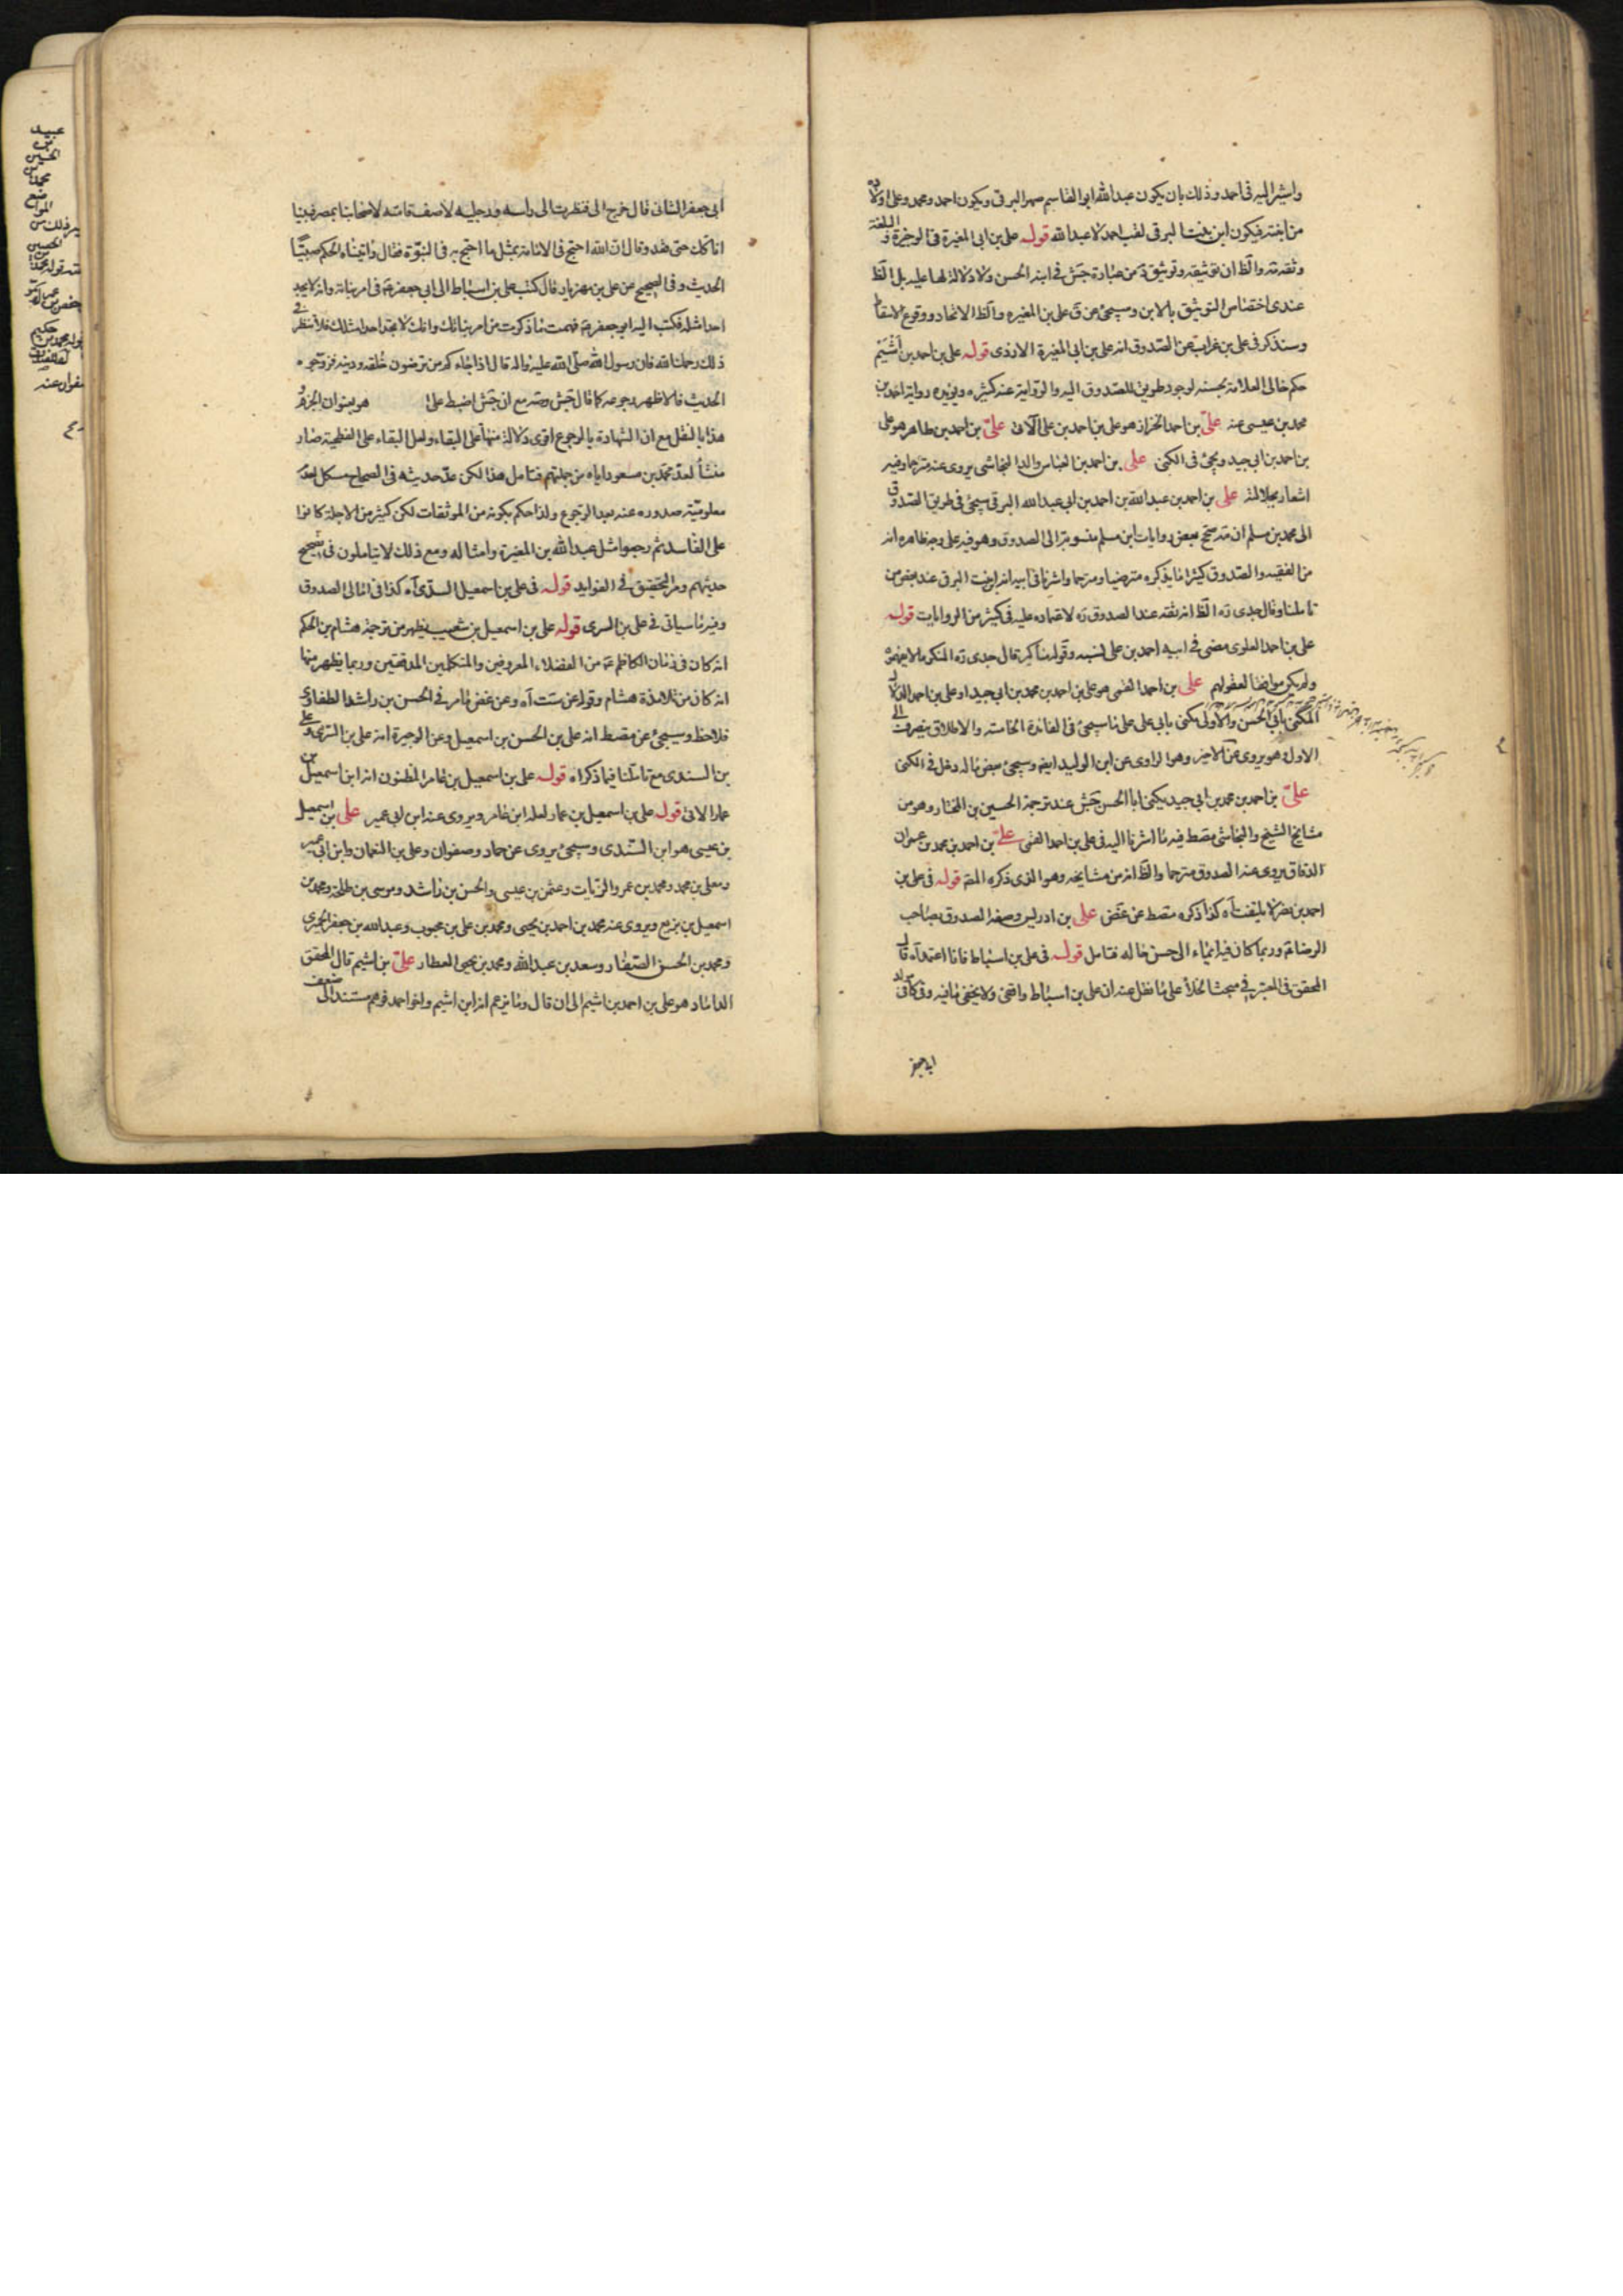 واشير اليه فى احمد وذلك بان يكون عبدالله ابو القاسم صهر البرقى ويكون احمد ومحمد وعلى اولاده
من ابنته فيكون ابن بنت البرقى لقب احمد لا عبدالله قوله على بن ابى المغيرة فى الوجيزة والبلغة
وثقه والظ ان توثيقه وتوثيق من عبارة جش فى ابنه الحسن ولا دلالة لها عليه بل الظ
عندى اختصاص التوثيق بالابن وسيجئ عن ق على بن المغيره والظ الاتحاد ووقوع الاسقاط
وسنذكر فى على بن غراب عن الصدوق انه على بن ابى المغيرة الازدى قوله على بن احمد بن اشيم
حكم خالى العلامة بحسنه لوجود طريق للصدوق اليه والرواية عنه كثيره ويؤيده رواية احمد بن
محمد بن عيسى عنه على بن احمد الخزاز هو على بن احمد بن على الآتى على بن احمد بن طاهر هو على
بن احمد بن ابى جيد ويجئ فى الكنى على بن احمد بن العباس والد النجاشى يروى عنه مترحما وفيه
اشعار بجلالته على بن احمد بن عبدالله بن احمد بن ابى عبدالله البرقى سيجئ فى طريق الصدوق
الى محمد بن مسلم انه صحح بعض روايات ابن مسلم منسوبة الى الصدوق وهو فيه على وجه ظاهره انه
من الفقيه والصدوق كثيرا ما يذكره مترضيا ومترحما واشرنا فى ابيه انه ابن بنت البرقى عند بعض من
تاملنا وقال جدى ره الظ انه ثقة عند الصدوق ره لاعتماده عليه فى كثير من الروايات قوله
على بن احمد العلوى مضى فى ابيه احمد بن على لنسبه وقوله مناكير قال جدى ره المنكر ما لا يفهموه
ولم يكن موافقا لعقولهم على بن احمد القمى هو على بن احمد بن محمد بن ابى جيد او على بن احمد الدلال
المكنى بابى الحسن والاولى يكنى بابى على على ما سيجئ فى الفائدة الخامسة والاطلاق ينصرف الى
الاول وهو يروى عن الاخير وهو الراوى عن ابن الوليد ايضا وسيجئ بعض ما له دخل فى الكنى
على بن احمد بن محمد بن ابى جيد يكنى ابا الحسن جش عند ترجمة الحسين بن المختار وهو من
مشايخ الشيخ والنجاشى مقسط فيه ما اشرنا اليه فى على بن احمد القمى على بن احمد بن محمد بن عمران
الدقاق يروى عنه الصدوق مترحما والظ انه من مشايخه وهو الذى ذكره المص قوله فى على بن
احمد بن نصر لا يلتفت اه كذا ذكره مقسط عن غض على بن ادريس وصفه الصدوق بصاحب
الرضا ع وربما كان فيه ايماء الى حسن حاله فتامل قوله فى على بن اسباط فانا اعتمد اه قال
المحقق فى المعتبر فى مبحث الخلأ على ما نقل عنه ان على بن اسباط واقفى ولا يخفى ما فيه وفى كافى
ابى جعفر
ابى جعفر الثانى قال خرج الى فنظرت الى راسه ورجليه لاصف قامته لاصحابنا بمصر فبينا
انا كك حتى قعد وقال ان الله احتج فى الامامة بمثل ما احتج به فى النبوة فقال واتيناه الحكم صبيا
الحديث وفى الصحيح عن على بن مهزيار قال كتب على بن اسباط الى ابى جعفر ع فى امر بناته وانه لا يجد
احدا مثله فكتب اليه ابو جعفر ع فهمت ما ذكرت من امر بناتك وانك لا تجد احدا مثلك فلا تنظر فى
ذلك رحمك الله فان رسول الله صلى الله عليه واله قال اذا جاءكم من ترضون خلقه ودينه فزوجوه
الحديث فالاظهر رجوعه كما قال جش وصه مع ان جش اضبط على هو بعنوان الجزم و
هذا بالنقل مع ان الشهادة بالرجوع اقوى دلالة منها على البقاء ولعل البقاء على الفطحية صار
منشأ لعد محمد بن مسعود اياه من جملتهم فتامل هذا لكن عد حديثه فى الصحاح مشكل لعدم
معلومية صدوره عنه بعد الرجوع ولذا حكم بكونه من الموثقات لكن كثير من الاجلة كانوا
على الفاسد ثم رجعوا مثل عبدالله بن المغيرة وامثاله ومع ذلك لا يتاملون فى تصحيح
حديثهم ومر التحقيق فى الفوايد قوله فى على بن اسمعيل السدى اه كذا فى امالى الصدوق
وفيه ما سياتى فى على بن السرى قوله على بن اسمعيل بن شعيب يظهر من ترجمة هشام بن الحكم
انه كان فى زمان الكاظم ع من الفضلاء المعروفين والمتكلمين المدققين وربما يظهر منها
انه كان من تلامذة هشام وقوله عن ست اه وعن غض مامر فى الحسن بن راشد الطفاوى
فلاحظ وسيجئ عن مقسط انه على بن الحسن بن اسمعيل وعن الوجيزة انه على بن السرى وعلى
بن السندى مع تاملنا فيما ذكراه قوله على بن اسمعيل بن عامر المظنون انه ابن اسمعيل بن
عمار الاتى قوله على بن اسمعيل بن عمار لعله ابن عامر ويروى عنه ابن ابى عمير على بن اسمعيل
بن عيسى هو ابن السندى وسيجئ يروى عن حماد وصفوان وعلى بن النعمان وابن ابى عمير
ومعلى بن محمد ومحمد بن عمرو الزيات وعثمن بن عيسى والحسن بن راشد وموسى بن طلحة ومحمد بن
اسمعيل بن بزيع ويروى عنه محمد بن احمد بن يحيى ومحمد بن على بن محبوب وعبدالله بن جعفر الحميرى
ومحمد بن الحسن الصفار وسعد بن عبدالله ومحمد بن يحيى العطار على بن اشيم قال المحقق
الداماد هو على بن احمد بن اشيم الى ان قال وما زعم انه ابن اشيم واخو احمد فوهم مستند الى ضعف
عبيد
بن
الحسين
محمد
المواضع
الحسين
بن
حكيم